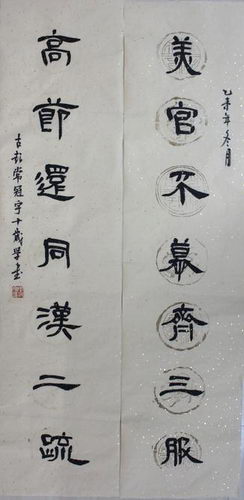 乙未年冬月
美官不慕齊三服
高節還同漢二疏
古彭常冠宇十歲學書